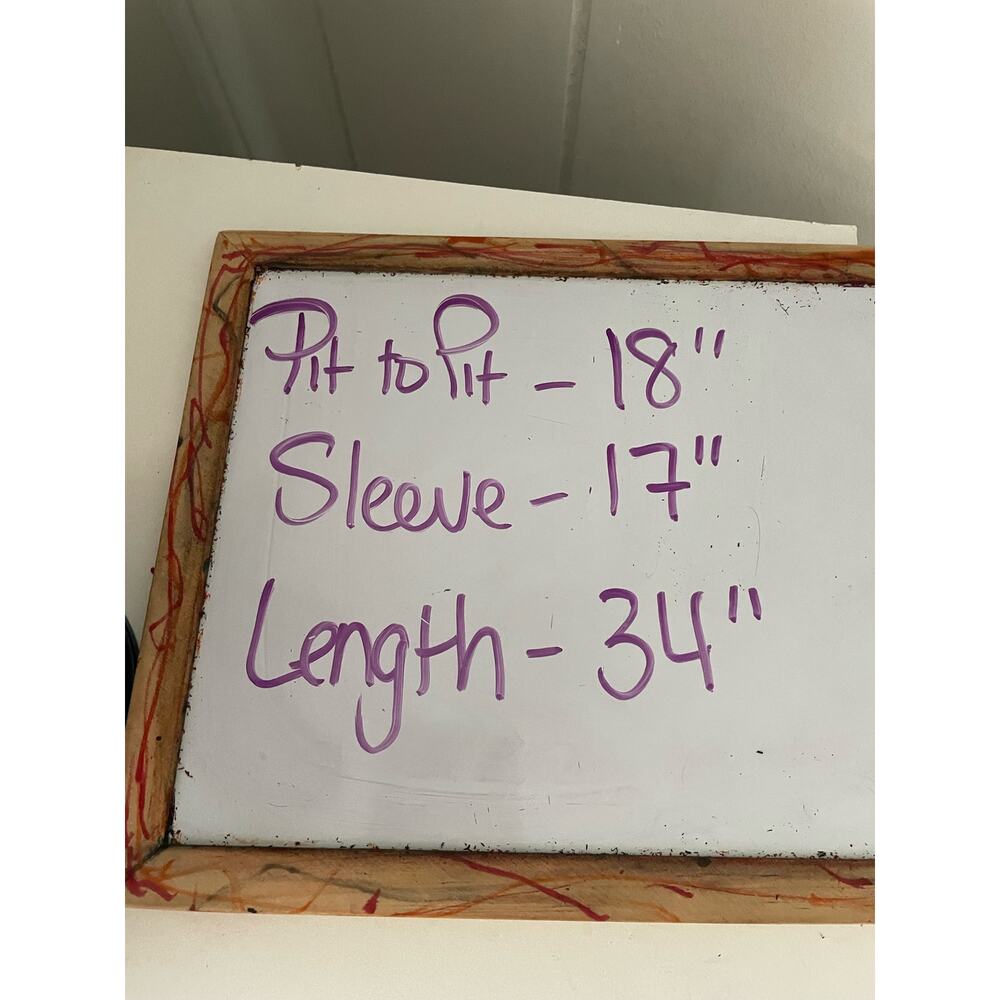 Pit to Pit - 18"
Sleeve - 17"
Length - 34"